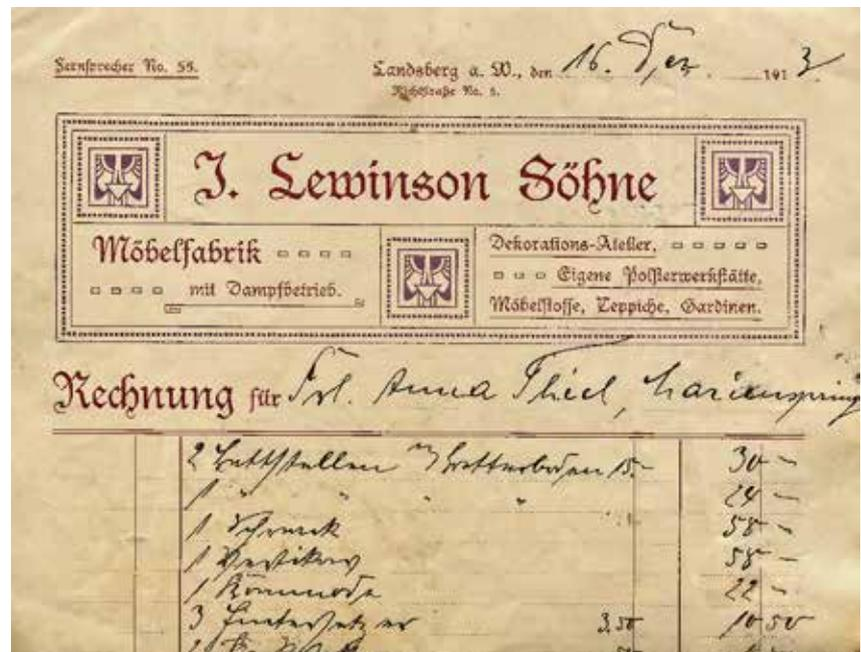 Fernsprecher No. 55.
Landsberg a. W., den 16. Dez. 1913
Richtstraße No. 5.
J. Lewinson Söhne
Möbelfabrik
mit Dampfbetrieb.
Dekorations-Atelier,
Eigene Polsterwerkstätte,
Möbelstoffe, Teppiche, Gardinen.
Rechnung für Frl. Anna Thiel, Marienspring
2 Bettstellen m/ Bretterboden 15.- 30 -
1 " " " " 24 -
1 Schrank 58 -
1 Vertikow 58 -
1 Kommode 22 -
3 3,50 10 50